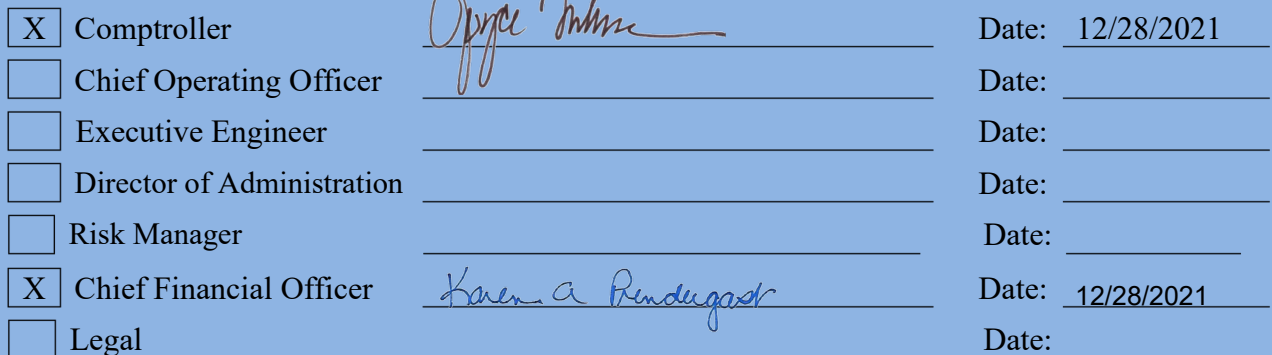 X Comptroller Date: 12/28/2021
Chief Operating Officer Date:
Executive Engineer Date:
Director of Administration Date:
Risk Manager Date:
X Chief Financial Officer Karen A Prendergast Date: 12/28/2021
Legal Date: